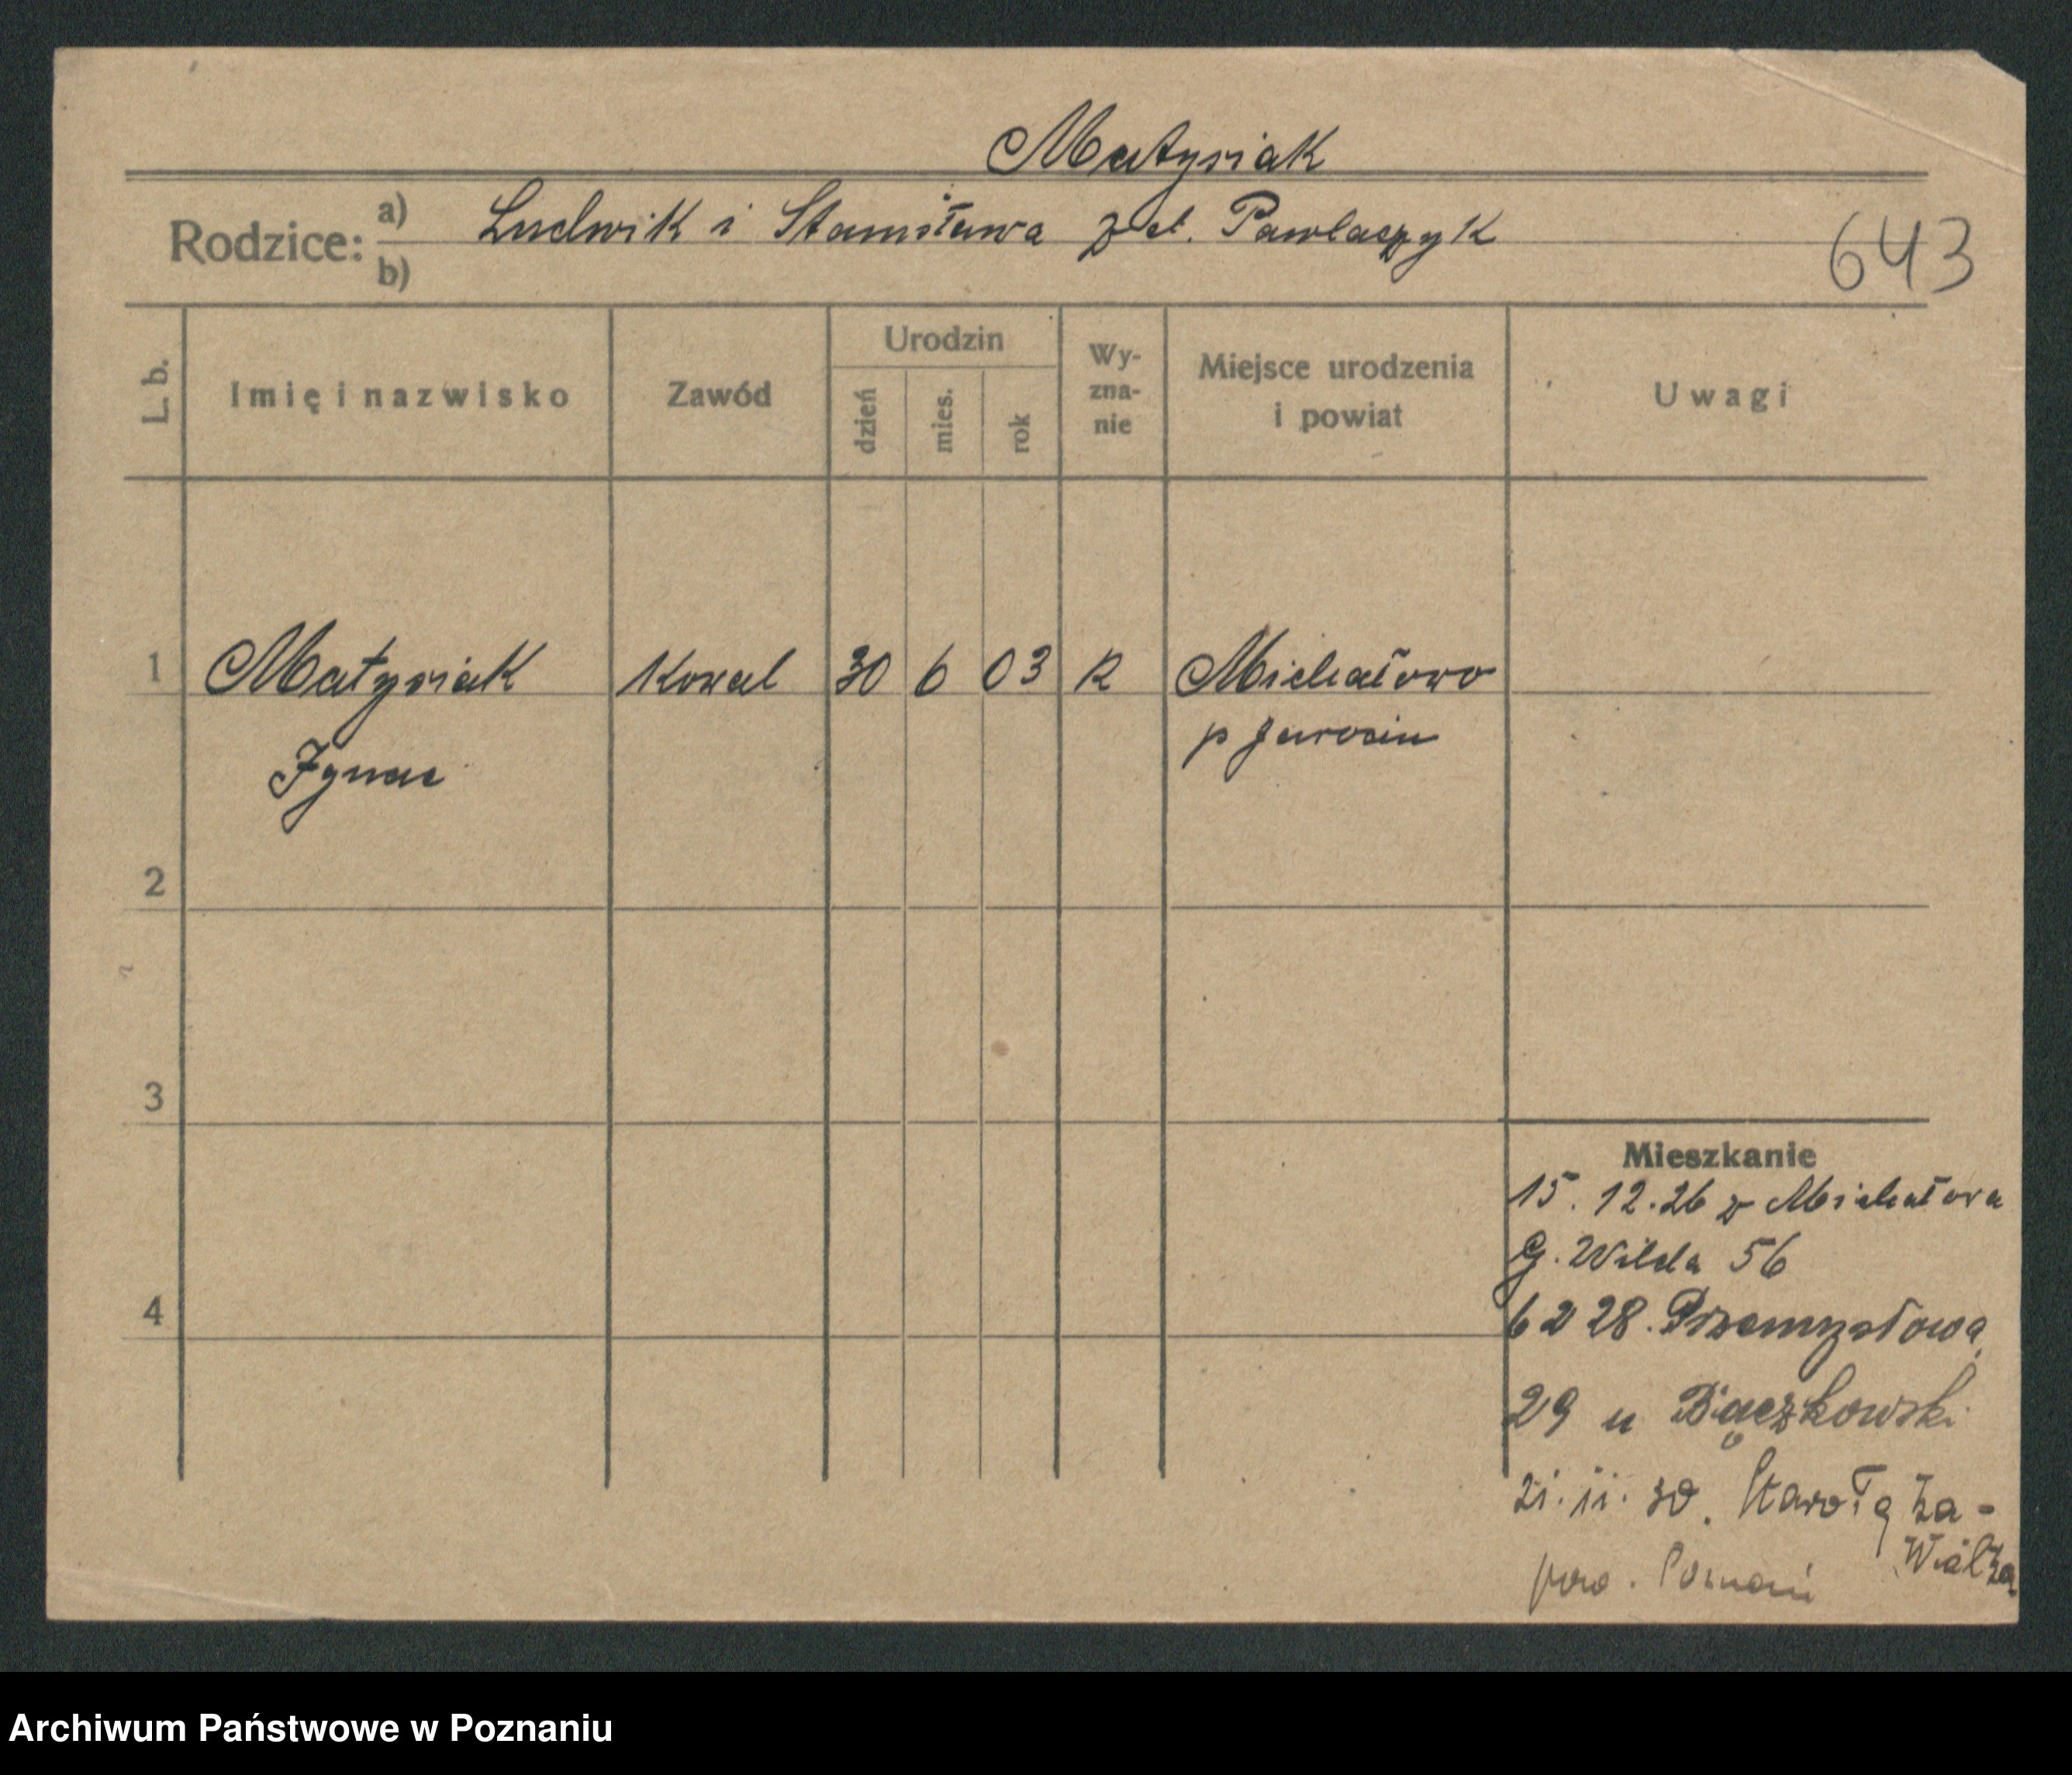 Matysiak
Rodzice: a) Ludwik i Stanisława z d. Pawlaczyk
b)
643
L. b. Imię i nazwisko Zawód Urodzin dzień mies. rok Wy-zna-nie Miejsce urodzenia i powiat Uwagi
1 Matysiak Kowal 30 6 03 R Michałowo
Ignac p Jarocin
2
3
4
Mieszkanie
15. 12. 26 z Michałowa
G. Wilda 56
6 2 28. Przemysłowa
29 u Bączkowski
21. 11. 30. Starołęka-
pow. Poznań
Archiwum Państwowe w Poznaniu